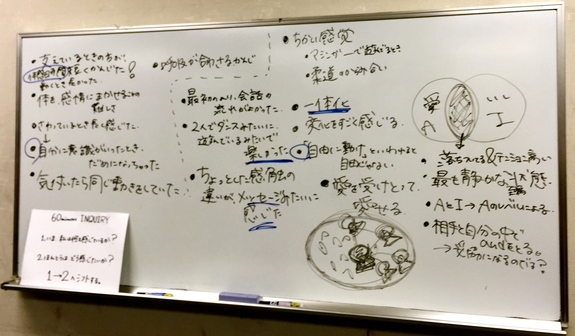 ・支えているときの方が、
時間を長くかんじた!
体を感情にまかせることの
難しさ
・さわっているときも長く感じた。
自分に意識がいったとき、
だめになっちゃった
・気づいたら同じ動きをしていた。
・呼吸が合わさるかんじ
・最初のノリ、会話の
流れがよかった。
・2人でダンスみたいに、
遊んでいるみたいで
楽しかった
・ちょっとした感触の
違いが、メッセージみたいに
感じた
・ちかい感覚
・柔道の組み合い
・一体化
・変化をすごく感じる。
・自由に動けといわせると
自由じゃない。
・愛を受けとって、
愛せる
愛
A
いい
I
・落ちついてる&テンション高い
・最も静かな状態
・AとI→Aのレベルになる。
・相手と自分の中で
andをとる。
→妥協になるのでは?
60minutes INQUIRY
1.いま、私は何を感じているか?
2.ほんとうは、どう感じたいか?
1→2へシフトする。